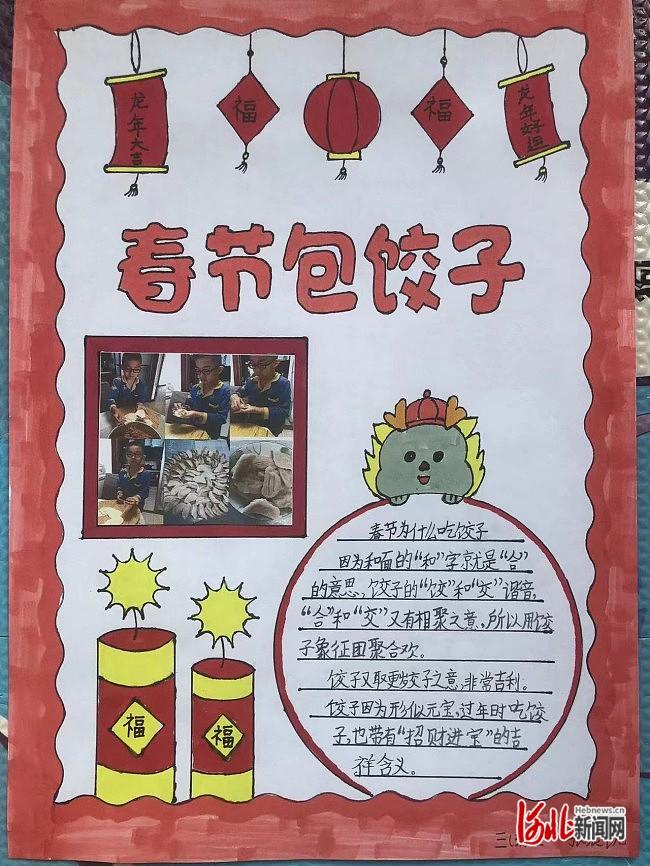 龙年大吉
福
福
龙年好运
春节包饺子
春节为什么吃饺子
因为和面的“和”字就是“合”
的意思,饺子的“饺”和“交”谐音,
“合”和“交”又有相聚之意,所以用饺
子象征团聚合欢。
饺子又取更岁交子之意,非常吉利。
饺子因为形似元宝,过年时吃饺
子,也带有“招财进宝”的吉
祥含义。
福
福
三
河北新闻网
Hebnews.cn